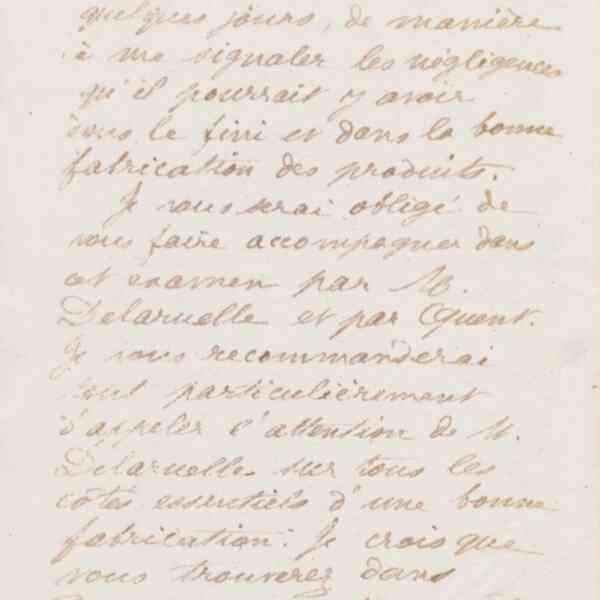 quelques jours, de manière
à me signaler les négligences
qu'il pourrait y avoir
dans le fini et dans la bonne
fabrication des produits.
Je vous serai obligé de
vous faire accompagner dans
cet examen par M.
Delaruelle et par Quent.
Je vous recommanderai
tout particulièrement
d'appeler l'attention de M.
Delaruelle sur tous les
côtés essentiels d'une bonne
fabrication. Je crois que
vous trouverez dans